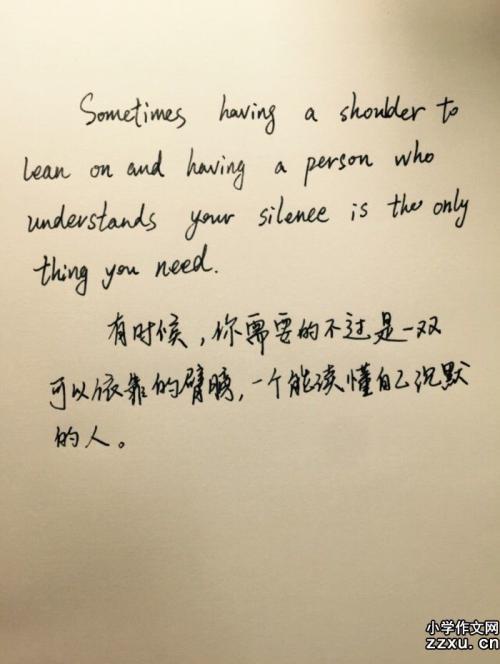 Sometimes having a shoulder to
lean on and having a person who
understands your silence is the only
thing you need.
有时候，你需要的不过是一双
可以依靠的臂膀，一个能读懂自己沉默
的人。
小学作文网
zzxu.cn